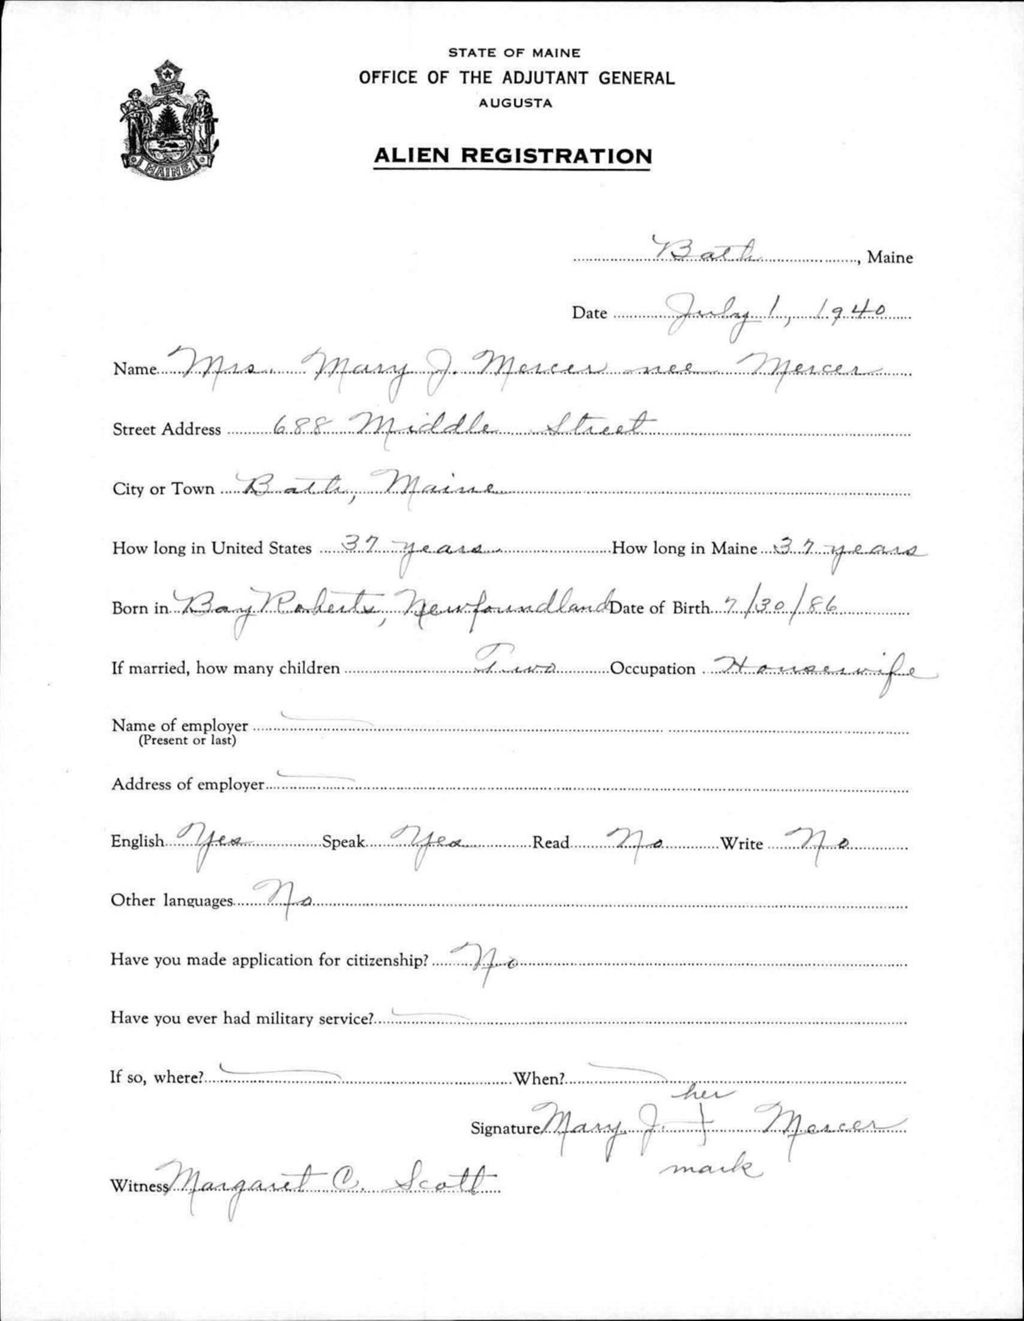 STATE OF MAINE
OFFICE OF THE ADJUTANT GENERAL
AUGUSTA
ALIEN REGISTRATION
MAINE
Bath, Maine
Date July 1, 1940
Name Mrs. Mary J. Mercer nee Mercer
Street Address 688 Middle Street
City or Town Bath, Maine
How long in United States 37 years How long in Maine 37 years
Born in Bay Roberts, Newfoundland Date of Birth 7/30/86
If married, how many children Two Occupation Housewife
Name of employer
(Present or last)
Address of employer
English Yes Speak Yes Read No Write No
Other languages No
Have you made application for citizenship? No
Have you ever had military service?
If so, where? When?
her
Signature Mary J. + Mercer
mark
Witness Margaret C. Scott